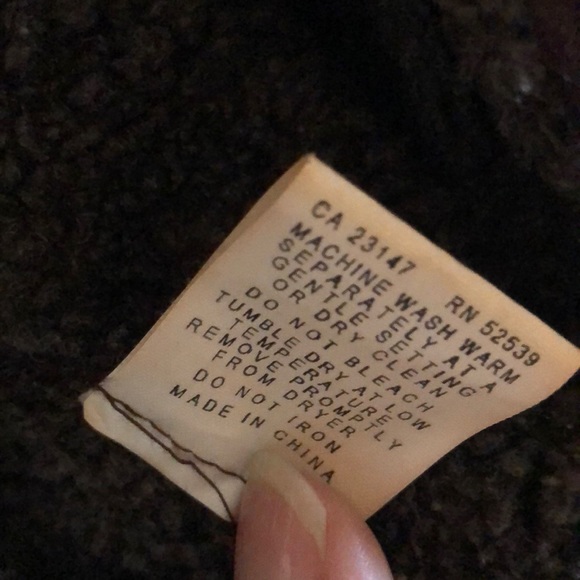 CA 23147 RN 52539
MACHINE WASH WARM
SEPARATELY AT A
GENTLE SETTING
OR DRY CLEAN
DO NOT BLEACH
TUMBLE DRY AT LOW
TEMPERATURE
REMOVE PROMPTLY
FROM DRYER
DO NOT IRON
MADE IN CHINA